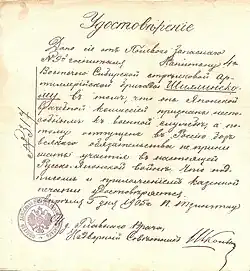 Удостовѣренiе
Дано сiе отъ Полевого Запаснаго
№ 9 госпиталя Капитану 1й
Восточно-Сибирской стрѣлковой Ар-
тиллерiйской бригады
въ томъ, что онъ Японской
Врачебной комиссiей признанъ не-
способнымъ къ военной службѣ, а по-
тому отпущенъ въ Россiю безъ
всякаго обязательства не прини-
мать участiя въ настоящей
Русско-Японской войнѣ, что под-
писью и приложенiемъ казенной
печати удостовѣряется
5 дня 1905 г.
Главнаго Врача,
Надворный Совѣтникъ